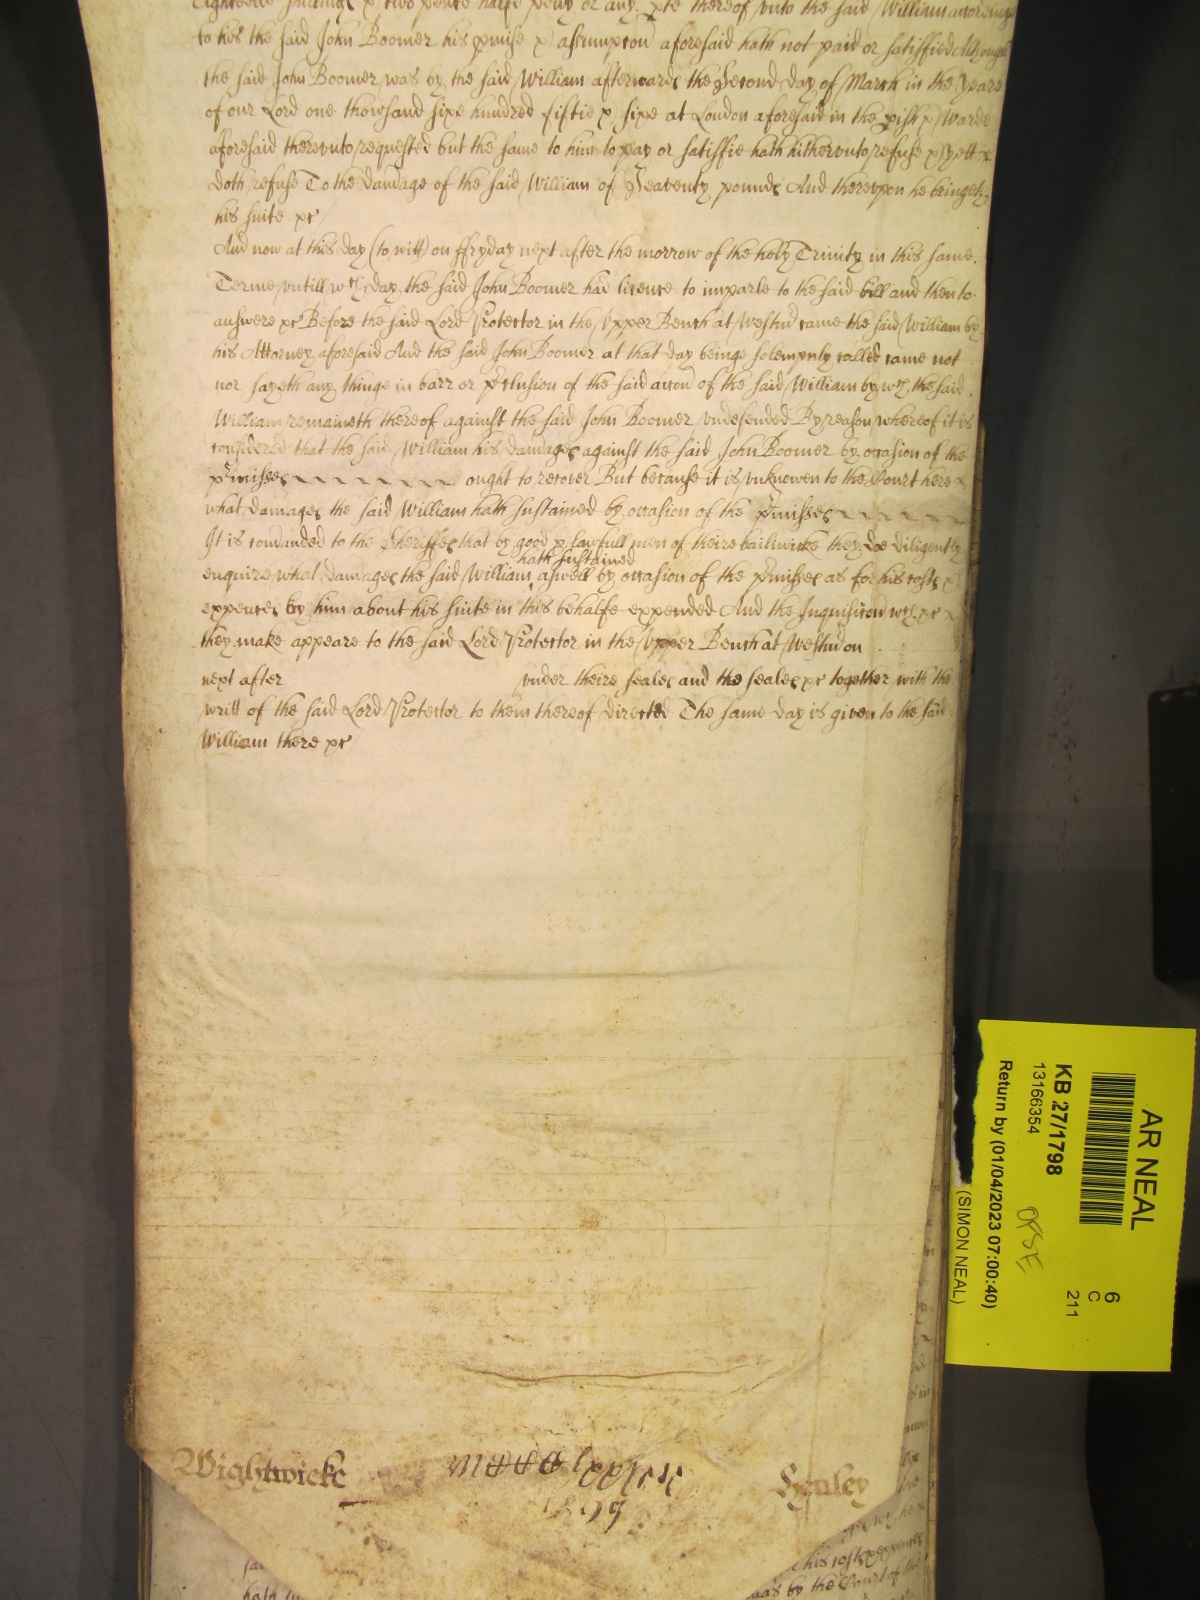 Eighteene shillings & two pence halfe peny or any pte thereof vnto the said William according
to his the said John Boomer his pmise & assumpcon aforesaid hath not paid or satisfied Although
the said John Boomer was by the said William afterwards the Second day of March in the yeare
of our Lord one thowsand sixe hundred fiftie & sixe at London aforesaid in the pish & Warde
aforesaid therevnto requested but the same to him to pay or satisfie hath hithervnto refuse & yett
doth refuse To the damage of the said William of Seaventy pounds And therevpon he bringeth
his suite &c
And now at this day (to witt) on ffryday next after the morrow of the holy Trinity in this same
Terme vntill wch day the said John Boomer had licence to imparle to the said bill and then to
answere &c Before the said Lord Protector in the Vpper Bench at Westm came the said William by
his Attorney aforesaid And the said John Boomer at that day beinge solempnly called came not
nor sayeth any thinge in barr or pclusion of the said accon of the said William by wch the said
William remaineth thereof against the said John Boomer vndefended By reason whereof it is
considered that the said William his damages against the said John Boomer by occasion of the
pmisses ought to recover But because it is vnknowen to the Court here
what damages the said William hath sustained by occasion of the pmisses
It is comanded to the Sheriffes that by good & lawfull men of theire bailiwicke they doe diligently
hath sustained
enquire what damages the said William aswell by occasion of the pmisses as for his costs &
expences by him about his suite in this behalfe expended And the Inquisicon wch &c
they make appeare to the said Lord Protector in the Vpper Bench at Westm on
next after vnder theire seales and the seales &c together with the
writt of the said Lord Protector to them thereof directed The same day is given to the said
William there &c
Wightwicke
Henley
AR NEAL
KB 27/1798
13166354
Return by (01/04/2023 07:00:40)
(SIMON NEAL)
6
C
211